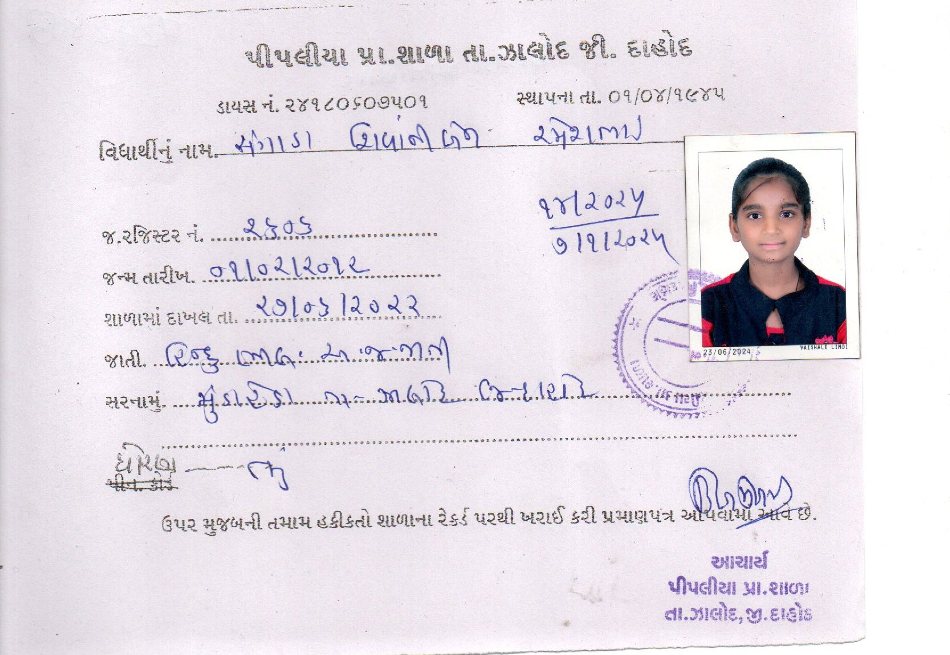 પીપલીયા પ્રા.શાળા તા.ઝાલોદ જી. દાહોદ
ડાયસ નં. ૨૪૧૮૦૬૦૭૫૦૧ સ્થાપના તા. ૦૧/૦૪/૧૯૪૫
વિધાર્થીનું નામ. સંગાડા શિવાંનીબેન રમેશભાઇ
૧૪/૨૦૨૫
૭/૧/૨૦૨૫
જ.રજિસ્ટર નં. ૨૬૦૬
જન્મ તારીખ. ૦૧/૦૨/૨૦૧૨
શાળામાં દાખલ તા. ૨૭/૦૬/૨૦૨૨
જાતી. હિન્દુ
સરનામું.
ધોરણ
પીન. કોર્ડ
23/06/2024
ઉપર મુજબની તમામ હકીકતો શાળાના રેકર્ડ પરથી ખરાઈ કરી પ્રમાણપત્ર આપવામાં આવે છે.
આચાર્ય
પીપલીયા પ્રા.શાળા
તા.ઝાલોદ,જી.દાહોદ